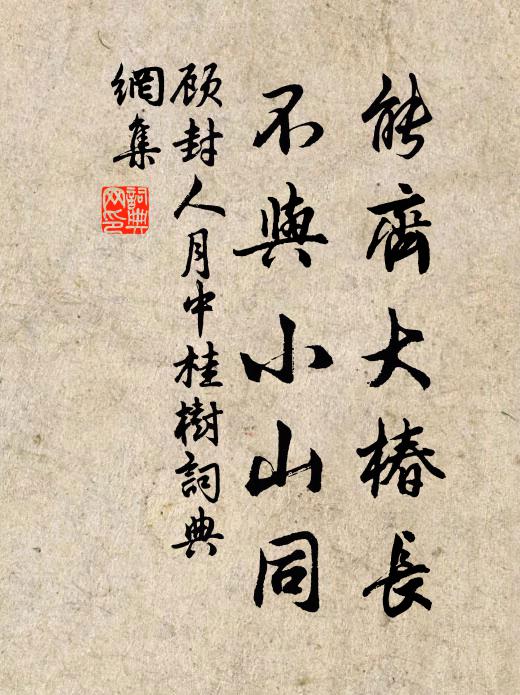 能齊大椿長
不與小山同
顾封人月中桂樹詞典
網集
詞典網印